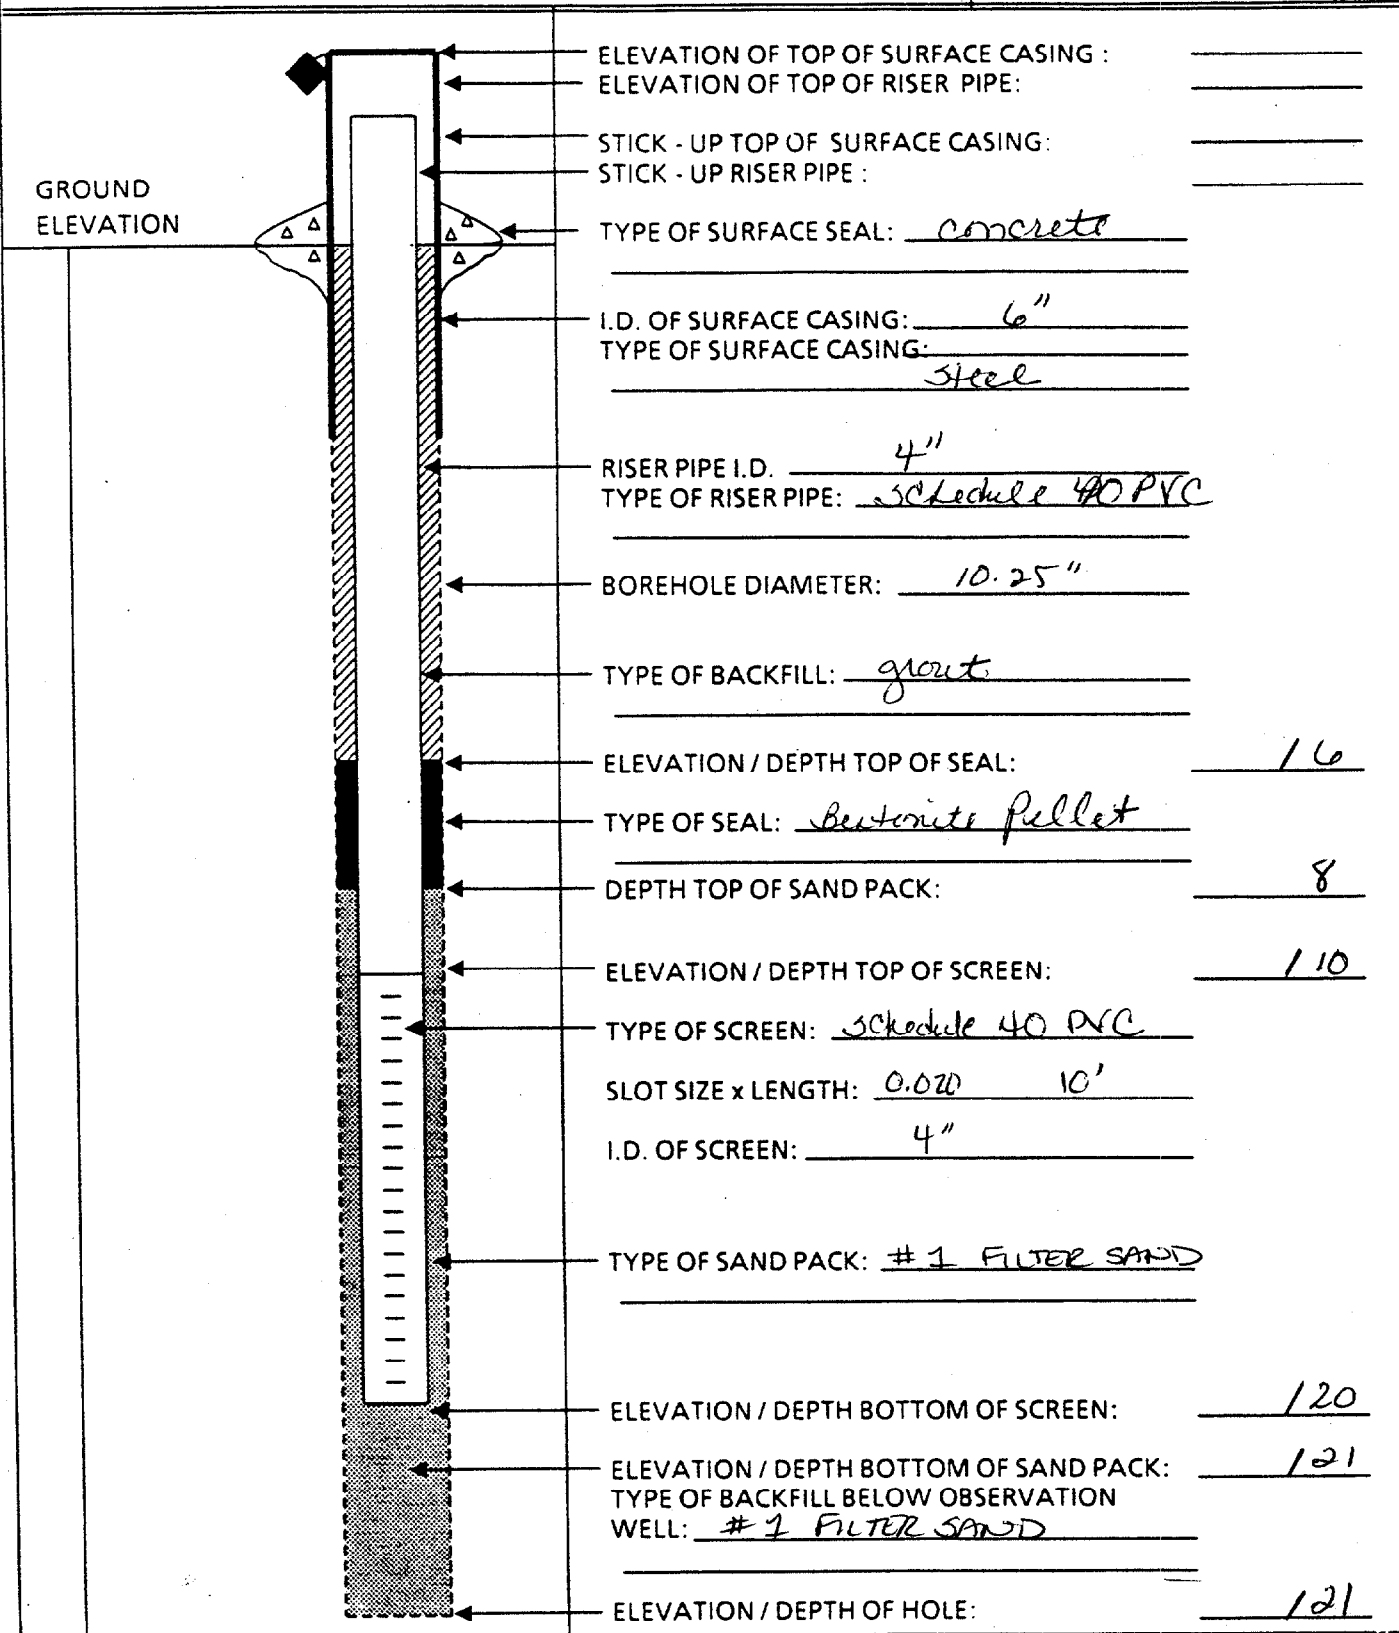 ELEVATION OF TOP OF SURFACE CASING :
ELEVATION OF TOP OF RISER PIPE:
STICK - UP TOP OF SURFACE CASING:
STICK - UP RISER PIPE :
GROUND
ELEVATION
TYPE OF SURFACE SEAL: concrete
I.D. OF SURFACE CASING: 6"
TYPE OF SURFACE CASING:
steel
RISER PIPE I.D. 4"
TYPE OF RISER PIPE: schedule 40 PVC
BOREHOLE DIAMETER: 10.25"
TYPE OF BACKFILL: grout
ELEVATION / DEPTH TOP OF SEAL: / 6
TYPE OF SEAL: Bentonite Pellet
DEPTH TOP OF SAND PACK: 8
ELEVATION / DEPTH TOP OF SCREEN: / 10
TYPE OF SCREEN: schedule 40 PVC
SLOT SIZE x LENGTH: 0.020 10'
I.D. OF SCREEN: 4"
TYPE OF SAND PACK: #1 FILTER SAND
ELEVATION / DEPTH BOTTOM OF SCREEN: / 20
ELEVATION / DEPTH BOTTOM OF SAND PACK: / 21
TYPE OF BACKFILL BELOW OBSERVATION
WELL: #1 FILTER SAND
ELEVATION / DEPTH OF HOLE: / 21